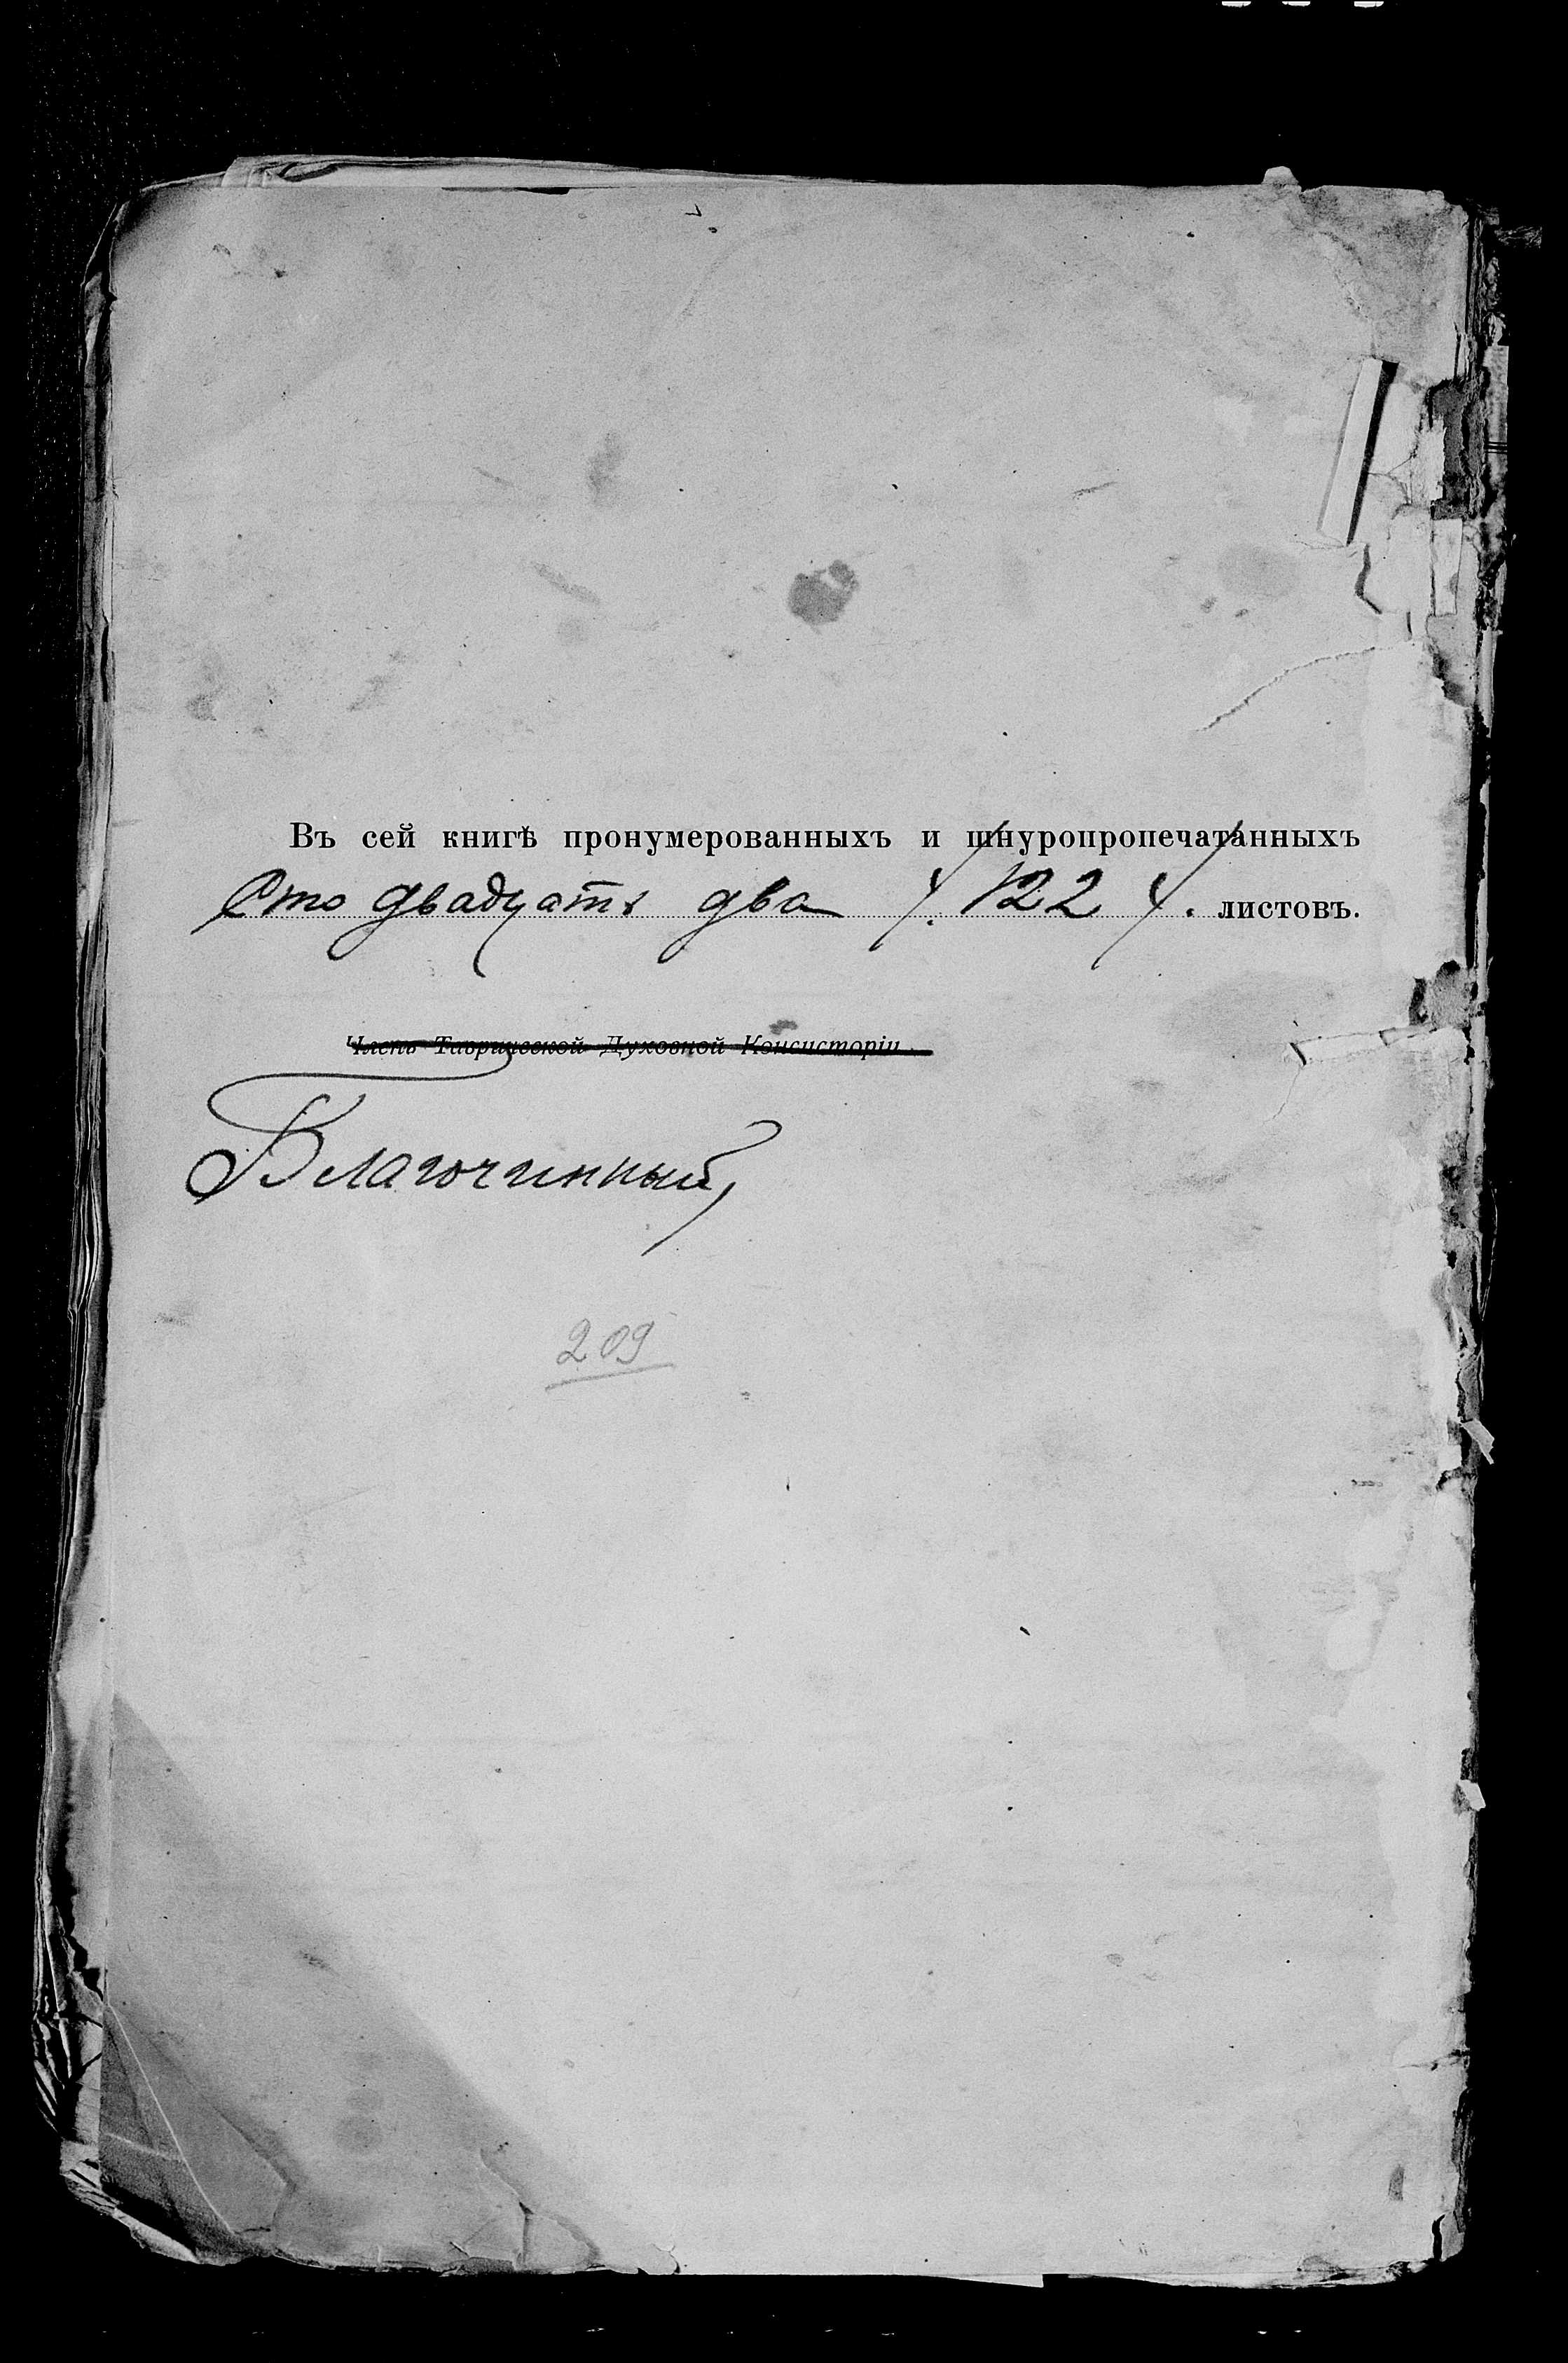 Въ сей книгѣ пронумерованныхъ и шнуропропечатанныхъ
Сто двадцать два /. 122 /. листовъ.
Членъ Таврической Духовной Консисторіи
Благочинный,
209